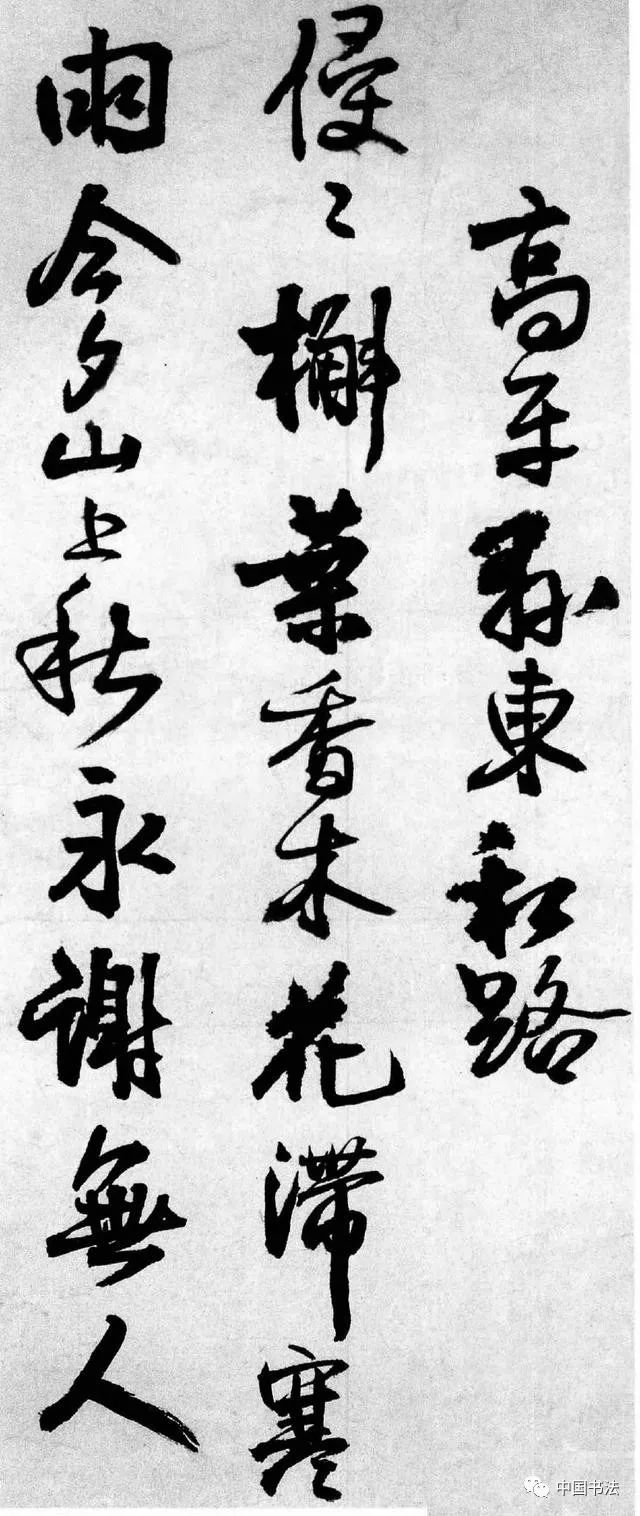 高平縣東私路
侵〻槲葉香木花滯寒
雨今夕山上秋永謝無人
中国书法